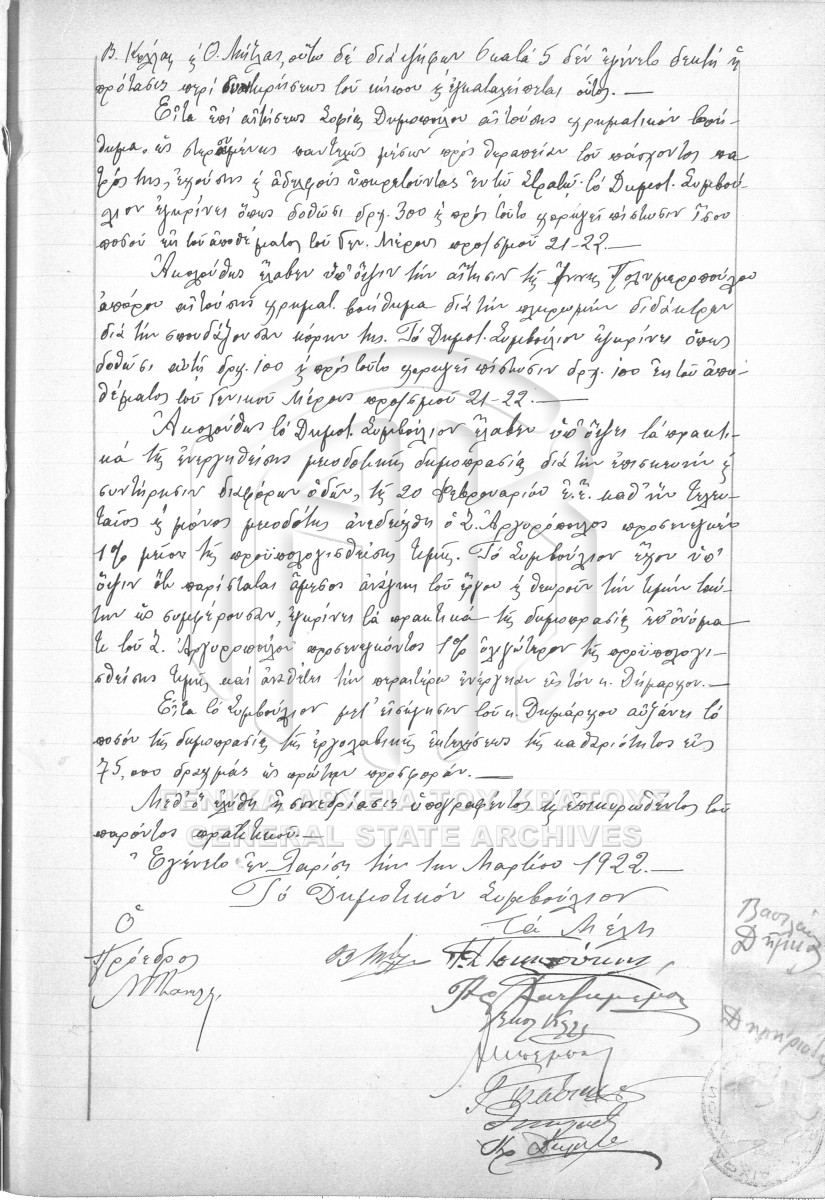 Β. Κύλλας & Θ. Μήτζας, οὕτω δὲ διὰ ψήφων 6 κατὰ 5 δὲν ἐγένετο δεκτὴ ἡ
πρότασις περὶ συντηρήσεως τοῦ κήπου & ἐγκαταλείπεται οὗτος. —
Εἶτα ἐπὶ αἰτήσεως Σοφίας Δημοπούλου αἰτούσης χρηματικὸν βοή-
θημα, ὡς στερουμένης παντελῶς μέσων πρὸς θεραπείαν τοῦ πάσχοντος πα-
τρός της, ἐχούσης & ἀδελφοὺς ὑπηρετοῦντας ἐν τῷ Στρατῷ. τὸ Δημοτ. Συμβού-
λιον ἐγκρίνει ὅπως δοθῶσι δρχ. 300 & πρὸς τοῦτο χορηγεῖ πίστωσιν ἴσου
ποσοῦ ἐκ τοῦ ἀποθέματος τοῦ Γεν. Μέρους προϋσμοῦ 21-22. —
Ἀκολούθως ἔλαβεν ὑπ' ὄψιν τὴν αἴτησιν τῆς Ἄννης Πολυμεροπούλου
ἀπόρου αἰτούσης χρηματ. βοήθημα διὰ τὴν πληρωμὴν διδάκτρων
διὰ τὴν σπουδάζουσαν κόρην της. Τὸ Δημοτ. Συμβούλιον ἐγκρίνει ὅπως
δοθῶσι αὐτῇ δρχ. 100 & πρὸς τοῦτο χορηγεῖ πίστωσιν δρχ. 100 ἐκ τοῦ ἀπο-
θέματος τοῦ Γενικοῦ Μέρους προϋσμοῦ 21-22. —
Ἀκολούθως τὸ Δημοτ. Συμβούλιον ἔλαβεν ὑπ' ὄψει τὰ πρακτι-
κὰ τῆς ἐνεργηθείσης μειοδοτικῆς δημοπρασίας διὰ τὴν ἐπισκευὴν &
συντήρησιν διαφόρων ὁδῶν, τῆς 20 Φεβρουαρίου ἐ.ἔ. καθ' ἣν τελευ-
ταῖος & μόνος μειοδότης ἀνεδείχθη ὁ Σ. Ἀργυρόπουλος προσενεγκὼν
1 % μεῖον τῆς προϋπολογισθείσης τιμῆς. Τὸ Συμβούλιον ἔχον ὑπ'
ὄψιν ὅτι παρίσταται ἄμεσος ἀνάγκη τοῦ ἔργου & θεωροῦν τὴν τιμὴν ταύ-
την ὡς συμφέρουσαν, ἐγκρίνει τὰ πρακτικὰ τῆς δημοπρασίας ἐπ' ὀνόμα-
τι τοῦ Σ. Ἀργυροπούλου προσενεγκόντος 1 % ὀλιγώτερον τῆς προϋπολογι-
σθείσης τιμῆς καὶ ἀναθέτει τὴν περαιτέρω ἐνέργειαν εἰς τὸν κ. Δήμαρχον. —
Εἶτα τὸ Συμβούλιον μετ' εἰσήγησιν τοῦ κ. Δημάρχου αὐξάνει τὸ
ποσὸν τῆς δημοπρασίας τῆς ἐργολαβικῆς ἐκτελέσεως τῆς καθαριότητος εἰς
75,000 δραχμὰς ὡς πρώτην προσφοράν. —
Μεθ' ὃ ἐλύθη ἡ συνεδρίασις ὑπογραφέντος & ἐπικυρωθέντος τοῦ
παρόντος πρακτικοῦ. —
Ἐγένετο ἐν Λαρίσῃ τὴν 1ην Μαρτίου 1922. —
Τὸ Δημοτικὸν Συμβούλιον
Ὁ
Πρόεδρος
Τὰ Μέλη
ΓΕΝΙΚΑ ΑΡΧΕΙΑ ΤΟΥ ΚΡΑΤΟΥΣ
GENERAL STATE ARCHIVES